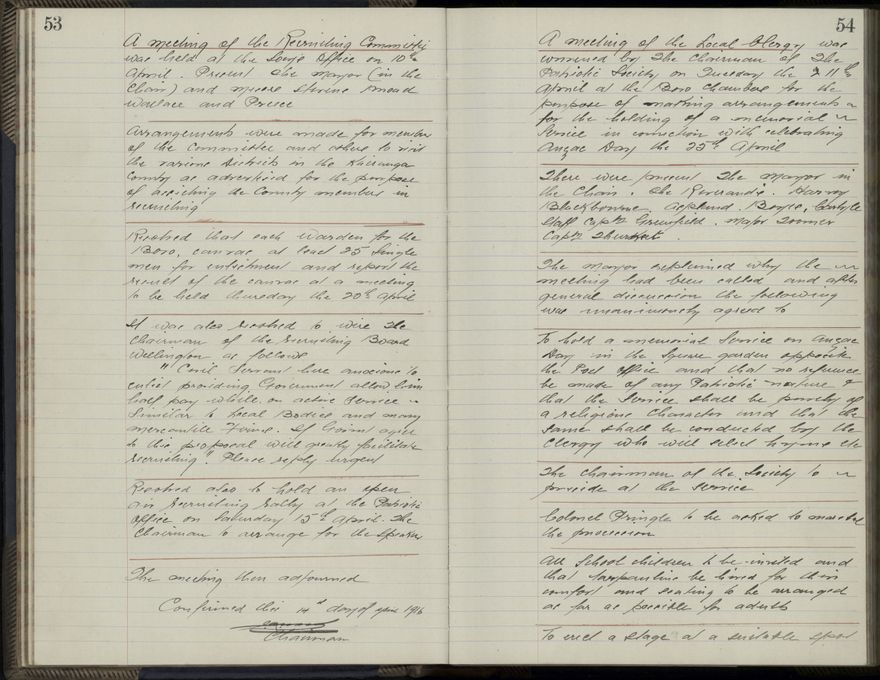 53
A meeting of the Recruiting Committee
was held at the Soways Office on 10th
April. Present The Mayor (in the
Chair) and
Wallace and Preece
Arrangements were made for members
of the Committee and others to visit
the various districts in the
County as advertised for the purpose
of assisting the County members in
recruiting
Resolved that each Warden for the
Boro, canvas at least 25 Single
men for enlistment and report the
result of the canvas at a meeting
to be held thursday the 20th April
It was also resolved to wire the
Chairman of the recruiting Board
Wellington as follows
"Civil Servant here anxious to
enlist providing Government allow him
half pay while on active Service
Similar to Local Bodies and many
mercantile Firms. If Govrmt agree
to this proposal will greatly facilitate
recruiting". Please reply urgent
Resolved also to hold an open
air recruiting rally at the Patriotic
Office on Saturday 15th April. The
Chairman to arrange for the Speakers
The meeting then adjourned
Confirmed this day of April 1916
Chairman
54
A meeting of the Local Clergy was
convened by The Chairman of The
Patriotic Society on Tuesday the 11th
April at the Boro Chambers for the
purpose of making arrangements
for the holding of a memorial
Service in connection with celebrating
Anzac Day the 25th April
There were present The Mayor in
the Chair. The Reverands. Harvey
Blackbourne, Boyce,
Staff Captn Greenfield. Major
Captn
The Mayor explained why the
meeting had been called and after
general discussion the following
was unanimously agreed to
To hold a memorial Service on Anzac
Day in the Square garden opposite
the Post Office and that no reference
be made of any Patriotic nature &
that the Service shall be purely of
a religious Character and that the
Same shall be conducted by the
Clergy who will select hymns etc
The Chairman of the Society to
preside at the Service
Colonel Pringle to be asked to marshal
the procession
All School children to be invited and
that tarpaulins be hired for their
comfort and seating to be arranged
as far as possible for adults
To erect a stage at a suitable spot